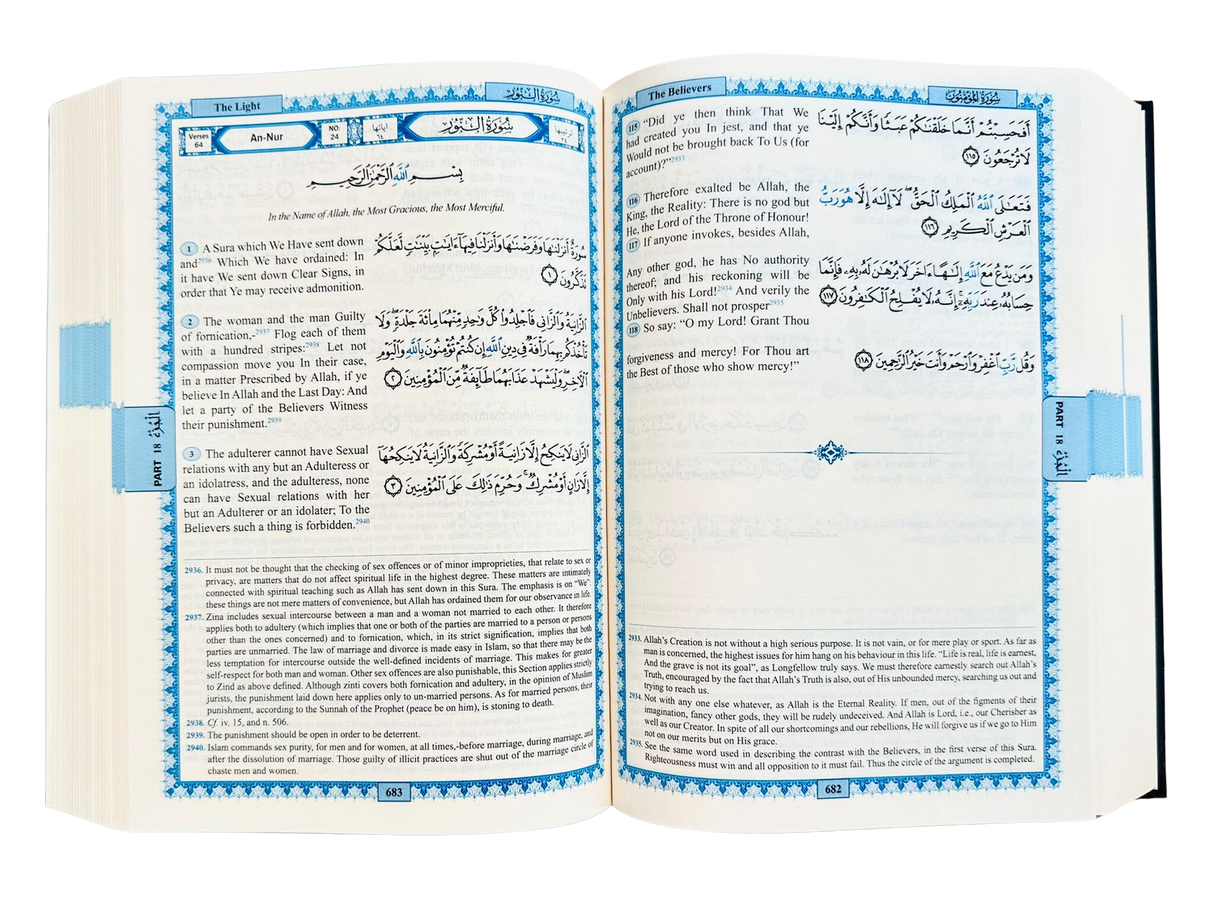 The Believers
سُورَةُ المُؤْمِنُون
115 "Did ye then think That We
had created you In jest, and that ye
Would not be brought back To Us (for
account)?"2933
أَفَحَسِبْتُمْ أَنَّمَا خَلَقْنَاكُمْ عَبَثًا وَأَنَّكُمْ إِلَيْنَا
لَا تُرْجَعُونَ ١١٥
116 Therefore exalted be Allah, the
King, the Reality: There is no god but
He, the Lord of the Throne of Honour!
117 If anyone invokes, besides Allah,
فَتَعَالَى ٱللَّهُ ٱلْمَلِكُ ٱلْحَقُّ لَآ إِلَٰهَ إِلَّا هُوَ رَبُّ
ٱلْعَرْشِ ٱلْكَرِيمِ ١١٦
Any other god, he has No authority
thereof; and his reckoning will be
Only with his Lord!2934 And verily the
Unbelievers. Shall not prosper2935
118 So say: "O my Lord! Grant Thou
وَمَن يَدْعُ مَعَ ٱللَّهِ إِلَٰهًا ءَاخَرَ لَا بُرْهَانَ لَهُۥ بِهِۦ فَإِنَّمَا
حِسَابُهُۥ عِندَ رَبِّهِۦٓ إِنَّهُۥ لَا يُفْلِحُ ٱلْكَافِرُونَ ١١٧
forgiveness and mercy! For Thou art
the Best of those who show mercy!"
وَقُل رَّبِّ ٱغْفِرْ وَٱرْحَمْ وَأَنتَ خَيْرُ ٱلرَّاحِمِينَ ١١٨
PART 18 الجُزْءُ
2933. Allah's Creation is not without a high serious purpose. It is not vain, or for mere play or sport. As far as
man is concerned, the highest issues for him hang on his behaviour in this life. "Life is real, life is earnest,
And the grave is not its goal", as Longfellow truly says. We must therefore earnestly search out Allah's
Truth, encouraged by the fact that Allah's Truth is also, out of His unbounded mercy, searching us out and
trying to reach us.
2934. Not with any one else whatever, as Allah is the Eternal Reality. If men, out of the figments of their
imagination, fancy other gods, they will be rudely undeceived. And Allah is Lord, i.e., our Cherisher as
well as our Creator. In spite of all our shortcomings and our rebellions, He will forgive us if we go to Him
not on our merits but on His grace.
2935. See the same word used in describing the contrast with the Believers, in the first verse of this Sura.
Righteousness must win and all opposition to it must fail. Thus the circle of the argument is completed.
682
The Light
سُورَةُ النُّور
Verses
64
An-Nur
NO:
24
آياتها
٦٤
سُورَةُ النُّور
ترتيبها
٢٤
بِسْمِ ٱللَّهِ ٱلرَّحْمَٰنِ ٱلرَّحِيمِ
In the Name of Allah, the Most Gracious, the Most Merciful.
1 A Sura which We Have sent down
and2936 Which We have ordained: In
it have We sent down Clear Signs, in
order that Ye may receive admonition.
سُورَةٌ أَنزَلْنَاهَا وَفَرَضْنَاهَا وَأَنزَلْنَا فِيهَآ ءَايَاتٍۭ بَيِّنَاتٍ لَّعَلَّكُمْ
تَذَكَّرُونَ ١
2 The woman and the man Guilty
of fornication,-2937 Flog each of them
with a hundred stripes:2938 Let not
compassion move you In their case,
in a matter Prescribed by Allah, if ye
believe In Allah and the Last Day: And
let a party of the Believers Witness
their punishment.2939
ٱلزَّانِيَةُ وَٱلزَّانِى فَٱجْلِدُوا۟ كُلَّ وَاحِدٍ مِّنْهُمَا مِا۟ئَةَ جَلْدَةٍ وَلَا
تَأْخُذْكُم بِهِمَا رَأْفَةٌ فِى دِينِ ٱللَّهِ إِن كُنتُمْ تُؤْمِنُونَ بِٱللَّهِ وَٱلْيَوْمِ
ٱلْءَاخِرِ وَلْيَشْهَدْ عَذَابَهُمَا طَآئِفَةٌ مِّنَ ٱلْمُؤْمِنِينَ ٢
3 The adulterer cannot have Sexual
relations with any but an Adulteress or
an idolatress, and the adulteress, none
can have Sexual relations with her
but an Adulterer or an idolater; To the
Believers such a thing is forbidden.2940
ٱلزَّانِى لَا يَنكِحُ إِلَّا زَانِيَةً أَوْ مُشْرِكَةً وَٱلزَّانِيَةُ لَا يَنكِحُهَآ
إِلَّا زَانٍ أَوْ مُشْرِكٌ وَحُرِّمَ ذَٰلِكَ عَلَى ٱلْمُؤْمِنِينَ ٣
PART 18 الجُزْءُ
2936. It must not be thought that the checking of sex offences or of minor improprieties, that relate to sex or
privacy, are matters that do not affect spiritual life in the highest degree. These matters are intimately
connected with spiritual teaching such as Allah has sent down in this Sura. The emphasis is on "We":
these things are not mere matters of convenience, but Allah has ordained them for our observance in life.
2937. Zina includes sexual intercourse between a man and a woman not married to each other. It therefore
applies both to adultery (which implies that one or both of the parties are married to a person or persons
other than the ones concerned) and to fornication, which, in its strict signification, implies that both
parties are unmarried. The law of marriage and divorce is made easy in Islam, so that there may be the
less temptation for intercourse outside the well-defined incidents of marriage. This makes for greater
self-respect for both man and woman. Other sex offences are also punishable, this Section applies strictly
to Zind as above defined. Although zinti covers both fornication and adultery, in the opinion of Muslim
jurists, the punishment laid down here applies only to un-married persons. As for married persons, their
punishment, according to the Sunnah of the Prophet (peace be on him), is stoning to death.
2938. Cf. iv. 15, and n. 506.
2939. The punishment should be open in order to be deterrent.
2940. Islam commands sex purity, for men and for women, at all times,-before marriage, during marriage, and
after the dissolution of marriage. Those guilty of illicit practices are shut out of the marriage circle of
chaste men and women.
683